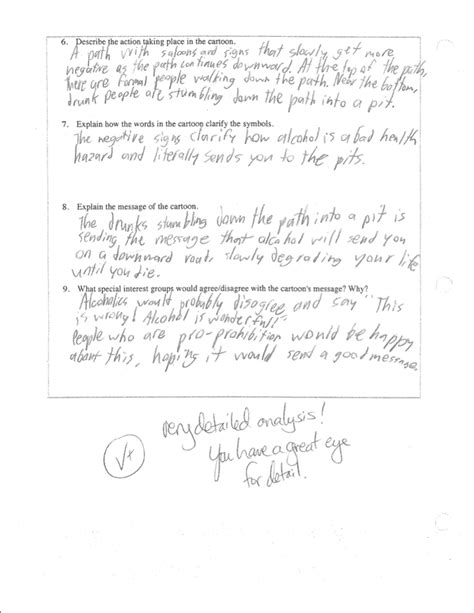 6. Describe the action taking place in the cartoon.
A path with saloons and signs that slowly get more
negative as the path continues downward. At the top of the path,
there are formal people walking down the path. Near the bottom,
drunk people are stumbling down the path into a pit.
7. Explain how the words in the cartoon clarify the symbols.
The negative signs clarify how alcohol is a bad health
hazard and literally sends you to the pits.
8. Explain the message of the cartoon.
The drunks stumbling down the path into a pit is
sending the message that alcohol will send you
on a downward road, slowly degrading your life
until you die.
9. What special interest groups would agree/disagree with the cartoon's message? Why?
Alcoholics would probably disagree and say "This
is wrong! Alcohol is wonderful!"
People who are pro-prohibition would be happy
about this, hoping it would send a good message.
very detailed analysis!
√+
You have a great eye
for detail.